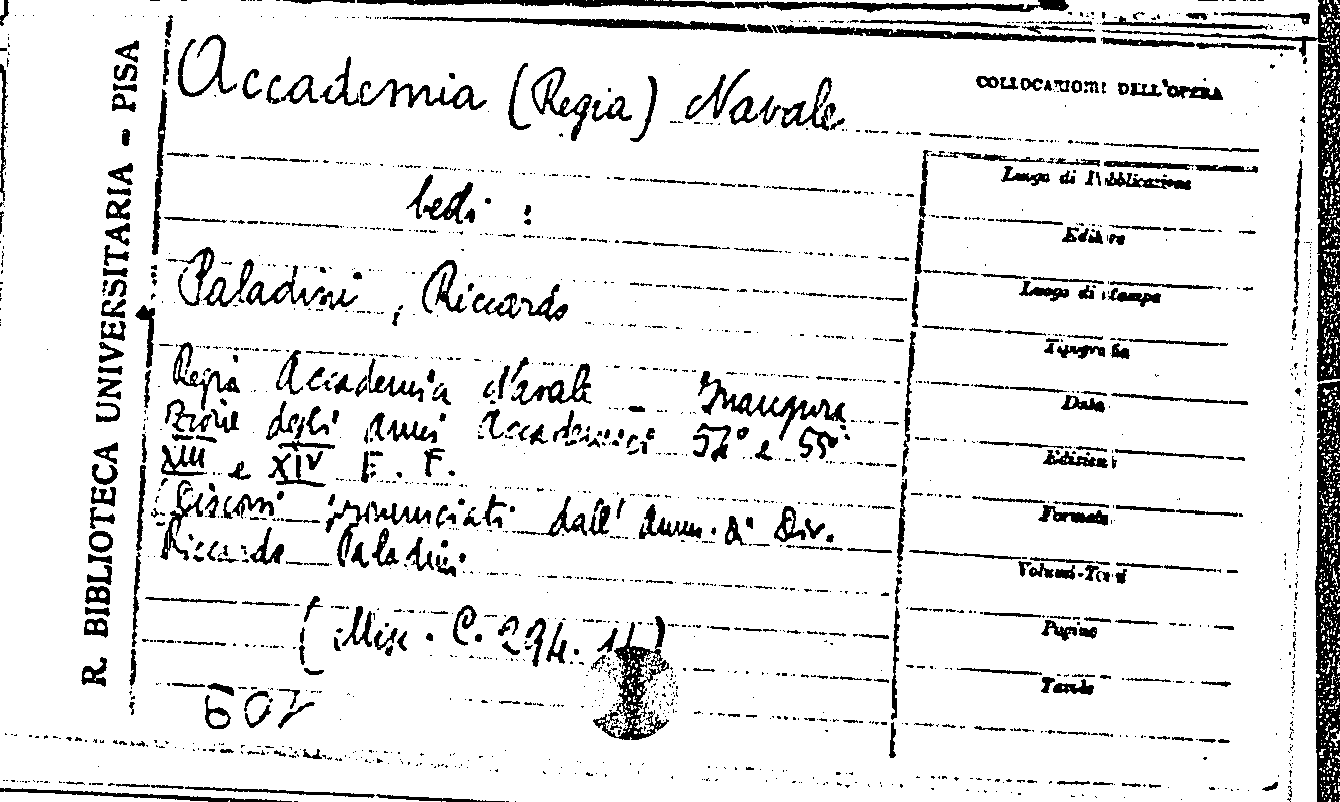 R. BIBLIOTECA UNIVERSITARIA - PISA
Accademia (Regia) Navale
COLLOCAZIONI DELL'OPERA
Vedi :
Paladini, Riccardo
Regia Accademia Navale - Inaugura
zione degli anni Accademici 54° e 55°
XIII e XIV E. F.
(Discorsi pronunciati dall' Amm. di Div.
Riccardo Paladini
(Misc. C. 294. 11)
Luogo di Pubblicazione
Editore
Luogo di stampa
Tipografia
Data
Edizioni
Formato
Volumi-Tomi
Pagine
Tavole